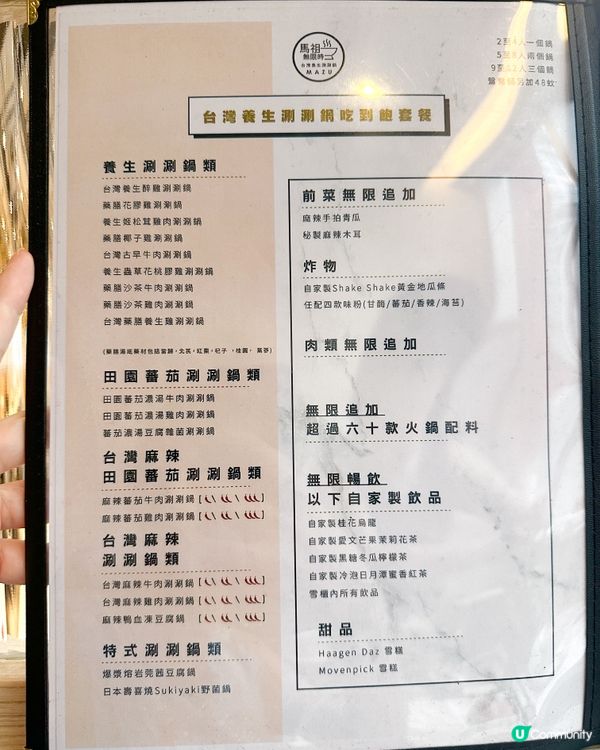 馬祖
無限時
台灣養生涮涮鍋
MAZU
2至4人一個鍋
5至8人兩個鍋
9至12人三個鍋
鴛鴦鍋另加48蚊
台灣養生涮涮鍋吃到飽套餐
養生涮涮鍋類
台灣養生醉雞涮涮鍋
藥膳花膠雞涮涮鍋
養生姬松茸雞肉涮涮鍋
藥膳椰子雞涮涮鍋
台灣古早牛肉涮涮鍋
養生蟲草花桃膠雞涮涮鍋
藥膳沙茶牛肉涮涮鍋
藥膳沙茶雞肉涮涮鍋
台灣藥膳養生雞涮涮鍋
(藥膳湯底藥材包括當歸，北芪，紅棗，杞子，桂圓，黨蔘)
田園蕃茄涮涮鍋類
田園蕃茄濃湯牛肉涮涮鍋
田園蕃茄濃湯雞肉涮涮鍋
蕃茄濃湯豆腐雜菌涮涮鍋
台灣麻辣
田園蕃茄涮涮鍋類
麻辣蕃茄牛肉涮涮鍋
麻辣蕃茄雞肉涮涮鍋
台灣麻辣
涮涮鍋類
台灣麻辣牛肉涮涮鍋
台灣麻辣雞肉涮涮鍋
麻辣鴨血凍豆腐鍋
特式涮涮鍋類
爆漿熔岩芫茜豆腐鍋
日本壽喜燒Sukiyaki野菌鍋
前菜無限追加
麻辣手拍青瓜
秘製麻辣木耳
炸物
自家製Shake Shake黃金地瓜條
任配四款味粉(甘酶/蕃茄/香辣/海苔)
肉類無限追加
無限追加
超過六十款火鍋配料
無限暢飲
以下自家製飲品
自家製桂花烏龍
自家製愛文芒果茉莉花茶
自家製黑糖冬瓜檸檬茶
自家製冷泡日月潭蜜香紅茶
雪櫃內所有飲品
甜品
Haagen Daz 雪糕
Movenpick 雪糕
U Community